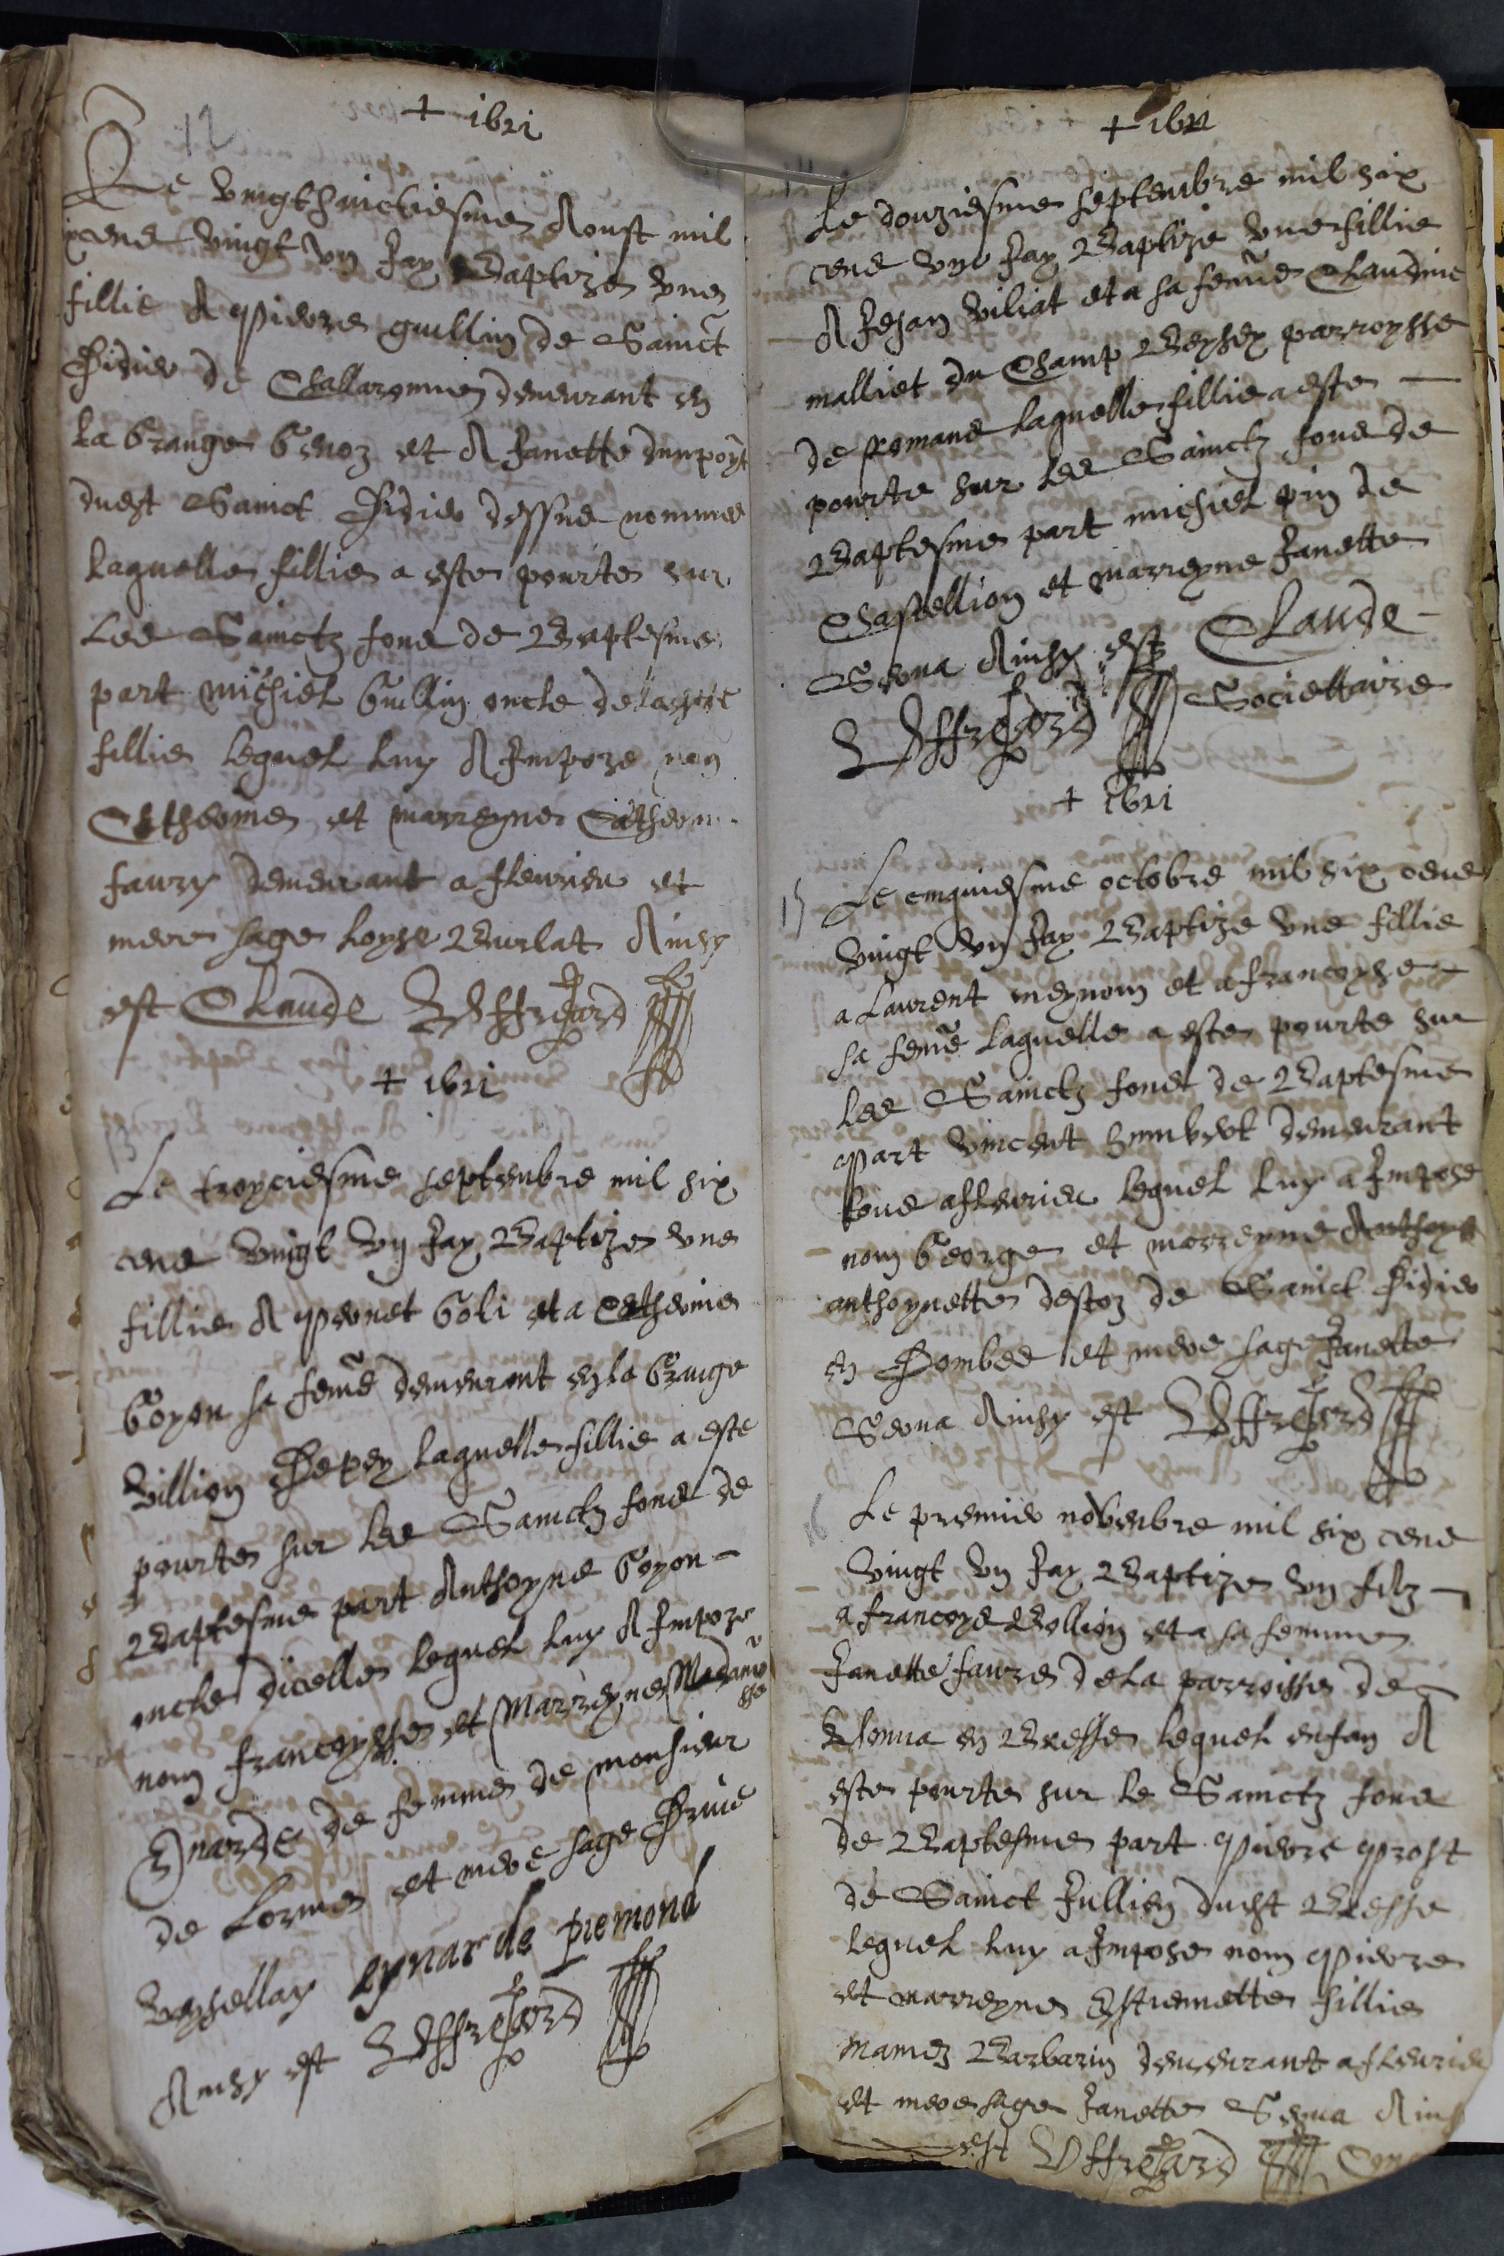 + 1621
12
Le vingthuictiesme Aoust mil
ixcens vingt un Jay Baptize une
fillie A Pierre guillin de Sainct
Didier de Challaronne demeurant en
la Grange Genoz et A Janette dunpoyt
dudt Sainct Didier dessus nommee
laquelle fillie a este pourte sur
Les Sainctz fons de Baptesme
part michiel Guillin oncle de ladicte
fillie lequel luy A Impoze nom
Catherine et marreyne Catherine
faury demeurant a fleurieu et
mere sage loyse Burlat Ainsy
est Claude Deffrepard
+ 1621
13
Le troyciesme septenbre mil six
cens vingt un Jay Baptize une
fillie A Pernet Goli et a Catherine
Goyon sa feme demeurant en la Grange
Billion Depey laquelle fillie a este
pourte sur les Sainctz fons de
Baptesme part Anthoyne Goyon
oncle dicelle lequel luy A Impoze
nom francoysse et Marreyne Madamoysse
Enarde de femme de monsieur
de Lorme et mere sage
eynarde piemond
Ainsy est Deffrepard
+ 1621
Le douziesme septenbre mil six
cens un Jay Baptize une fillie
A Jehan Viliat et a sa feme Claudine
malliet du Champ parroysse
de romans laquelle fillie a este
pourte sur les Sainctz fons de
Baptesme part michiel pin de
Chastellion et marreyne Janette
Serva Ainsy est Claude
Deffrepard Societtaire
+ 1621
15
Le cinquiesme octobre mil six cens
vingt un Jay Baptize une fillie
a Laurent meynom et a francoyse
sa feme laquelle a este pourte sur
les Sainctz fons de Baptesme
Part vincent humbert demeurant
a fleurieu lequel luy a Impose
nom George et marreyne Anthoye
anthoynette destoz de Sainct Didier
en Dombes et mere sage Janette
Serva Ainsy est Deffrepard
16
Le premier novenbre mil six cens
vingt un Jay Baptize un filz
a francoys Bollion et a sa femme
Janette faure de la parroisse de
en Bresse lequel enfan A
este pourte sur le Sainctz fons
de Baptesme part Pierre Prost
de Sainct Jullien dudt Bresse
lequel luy a Impose nom Pierre
et marreyne Estiennette fillie
Mamez Barbarin demeurant a fleurieu
et mere sage Janette Serva Ains
est Deffrepard